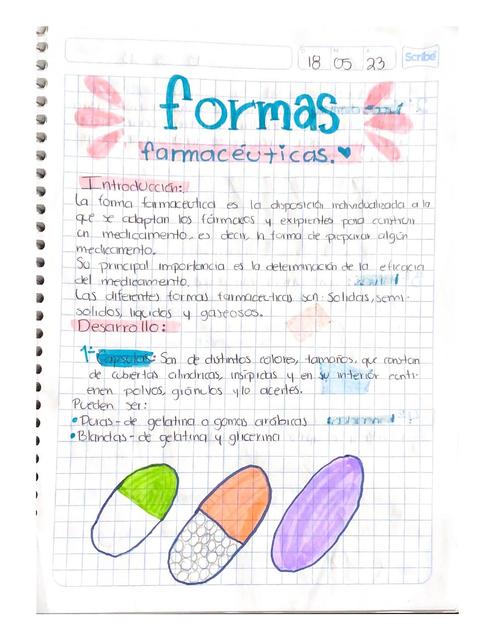 18 05 23
Scribe
formas
farmacéuticas.
Introducción:
La forma farmacéutica es la disposición individualizada a la
que se adaptan los fármacos y exipientes para constituir
un medicamento, es decir, la forma de preparar algún
medicamento.
Su principal importancia es la determinación de la eficacia
del medicamento.
Las diferentes formas farmaceuticas son: Solidas, semi-
solidos, liquidos y gaseosos.
Desarrollo:
1- Capsulas: Son de distintos colores, tamaños, que constan
de cubiertas cilindricas, insípidas y en su interior conti-
enen polvos, gránulos y/o aceites.
Pueden ser:
• Duras - de gelatina o gomas arábicas
• Blandas - de gelatina y glicerina